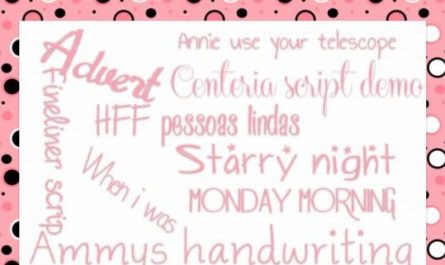 Advert
Annie use your telescope
Centeria script demo
Fineliner scrip
HFF pessoas lindas
When i was
Starry night
MONDAY MORNING
Ammys handwriting